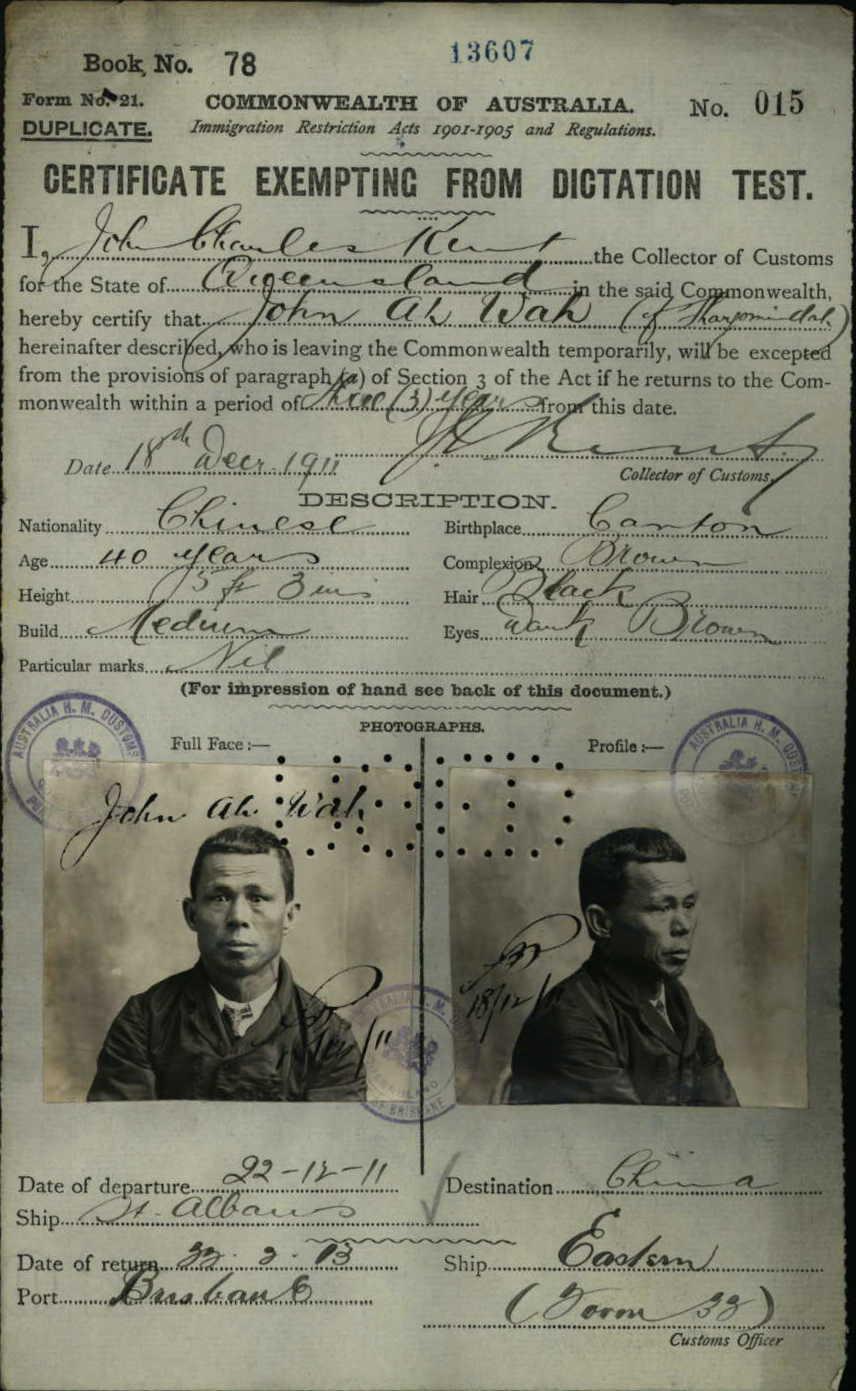 Book No. 78
13607
Form No. 21.
COMMONWEALTH OF AUSTRALIA.
No. 015
DUPLICATE.
Immigration Restriction Acts 1901-1905 and Regulations.
CERTIFICATE EXEMPTING FROM DICTATION TEST.
I, John Charles Kent the Collector of Customs
for the State of Queensland in the said Commonwealth,
hereby certify that John Ah Wah (of Thargomindah)
hereinafter described, who is leaving the Commonwealth temporarily, will be excepted
from the provisions of paragraph (a) of Section 3 of the Act if he returns to the Com-
monwealth within a period of three (3) years from this date.
Date 18th Decr. 1911
Collector of Customs.
DESCRIPTION.
Nationality Chinese Birthplace Canton
Age 40 years Complexion Brown
Height 5 ft 3 ins Hair Black
Build Medium Eyes Dark Brown
Particular marks Nil
(For impression of hand see back of this document.)
PHOTOGRAPHS.
Full Face :— Profile :—
AUSTRALIA H. M. CUSTOMS
AUSTRALIA H. M. CUSTOMS
John Ah Wah
18/12/11
AUSTRALIA H. M.
OF BRISBANE
Date of departure 22-12-11 Destination China
Ship St. Albans
Date of return 22. 2. 13 Ship Eastern
Port Brisbane
(Form 32)
Customs Officer